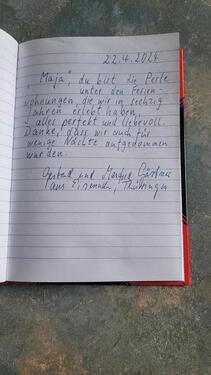 22.4.2024
"Maja", du bist die Perle
unter den Ferien-
wohnungen, die wir in sechzig
Jahren erlebt haben,
alles perfekt und liebevoll.
Danke, dass wir auch für
wenige Nächte aufgenommen
wurden.
und Manfred
aus Eisenach, Thüringen